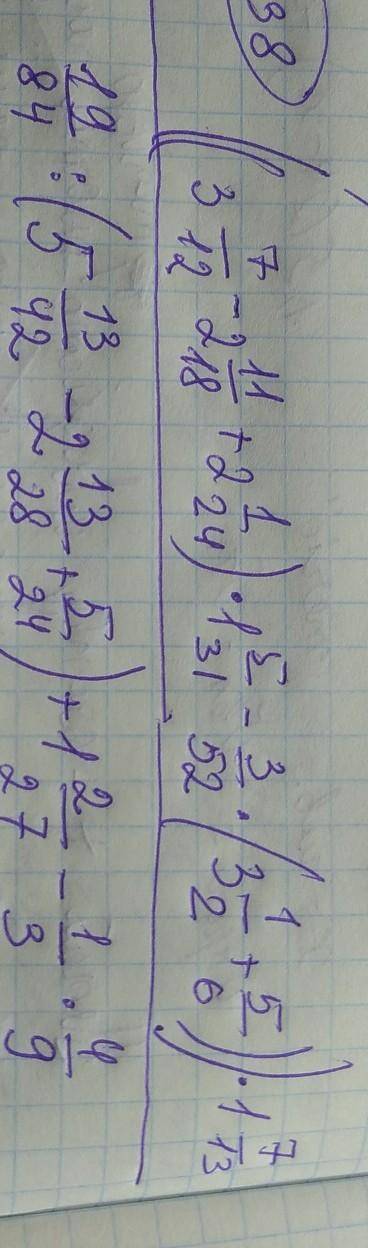 38
((3 7/12 - 2 11/18 + 2 1/24) · 1 5/31 - 3/52 · (3 1/2 + 5/6)) · 1 7/13
19/84 : (5 13/42 - 2 13/28 + 5/24) + 1 2/27 - 1/3 · 4/9